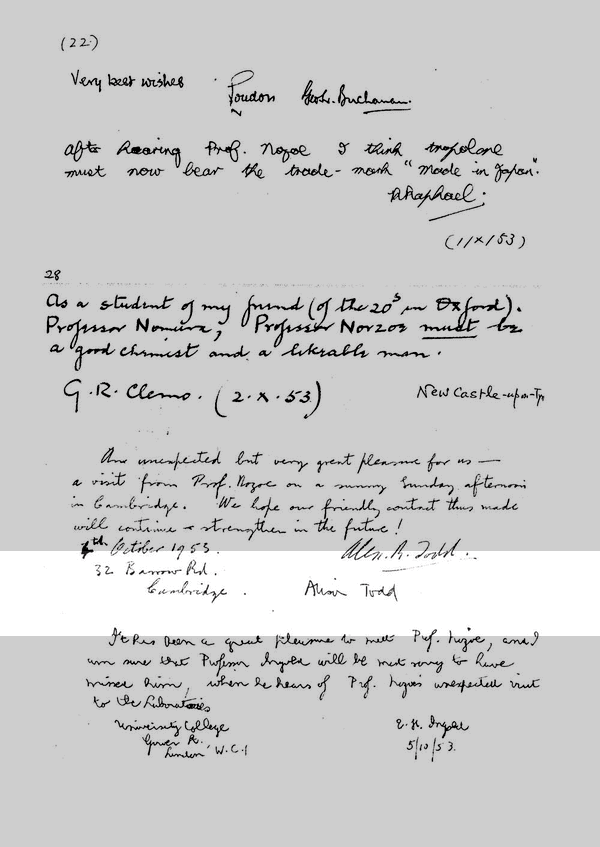 (22)
Very best wishes Loudon Geo. L. Buchanan.
After hearing Prof. Nozoe I think tropolone
must now bear the trade-mark "made in Japan".
R Raphael.
(1/x/53)
28
As a student of my friend (of the 20s in Oxford).
Professor Nomura, Professor Norzoe must be
a good chemist and a likeable man.
G. R. Clemo. (2.x.53)
New Castle-upon-Ty
An unexpected but very great pleasure for us —
a visit from Prof. Nozoe on a sunny Sunday afternoon
in Cambridge. We hope our friendly contact thus made
will continue & strengthen in the future!
4th October 1953. Alex. R. Todd.
32 Barrow Rd.
Cambridge. Alison Todd
It has been a great pleasure to meet Prof. Nozoe, and I
am sure that Professor Ingold will be most sorry to have
missed him, when he hears of Prof. Nozoe's unexpected visit
to the Laboratories
University College
Gower St.
London W.C.1
E. H. Ingold
5/10/53.